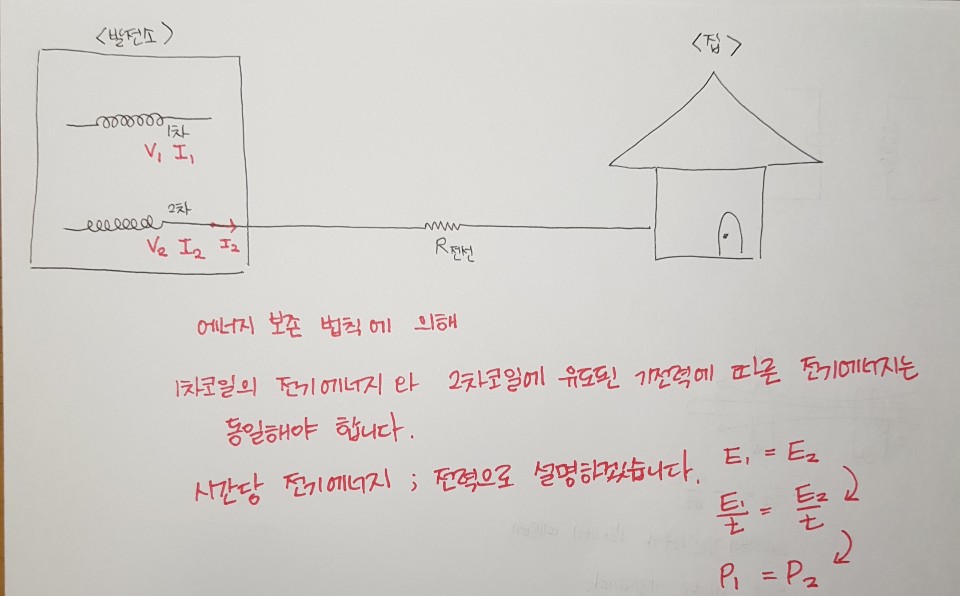 <발전소>
<집>
1차
V₁ I₁
2차
V₂ I₂
I₂
R전선
에너지 보존 법칙에 의해
1차코일의 전기에너지와 2차코일에 유도된 기전력에 따른 전기에너지는
동일해야 합니다.
시간당 전기에너지 ; 전력으로 설명하겠습니다.
E₁ = E₂
E₁/t = E₂/t
P₁ = P₂